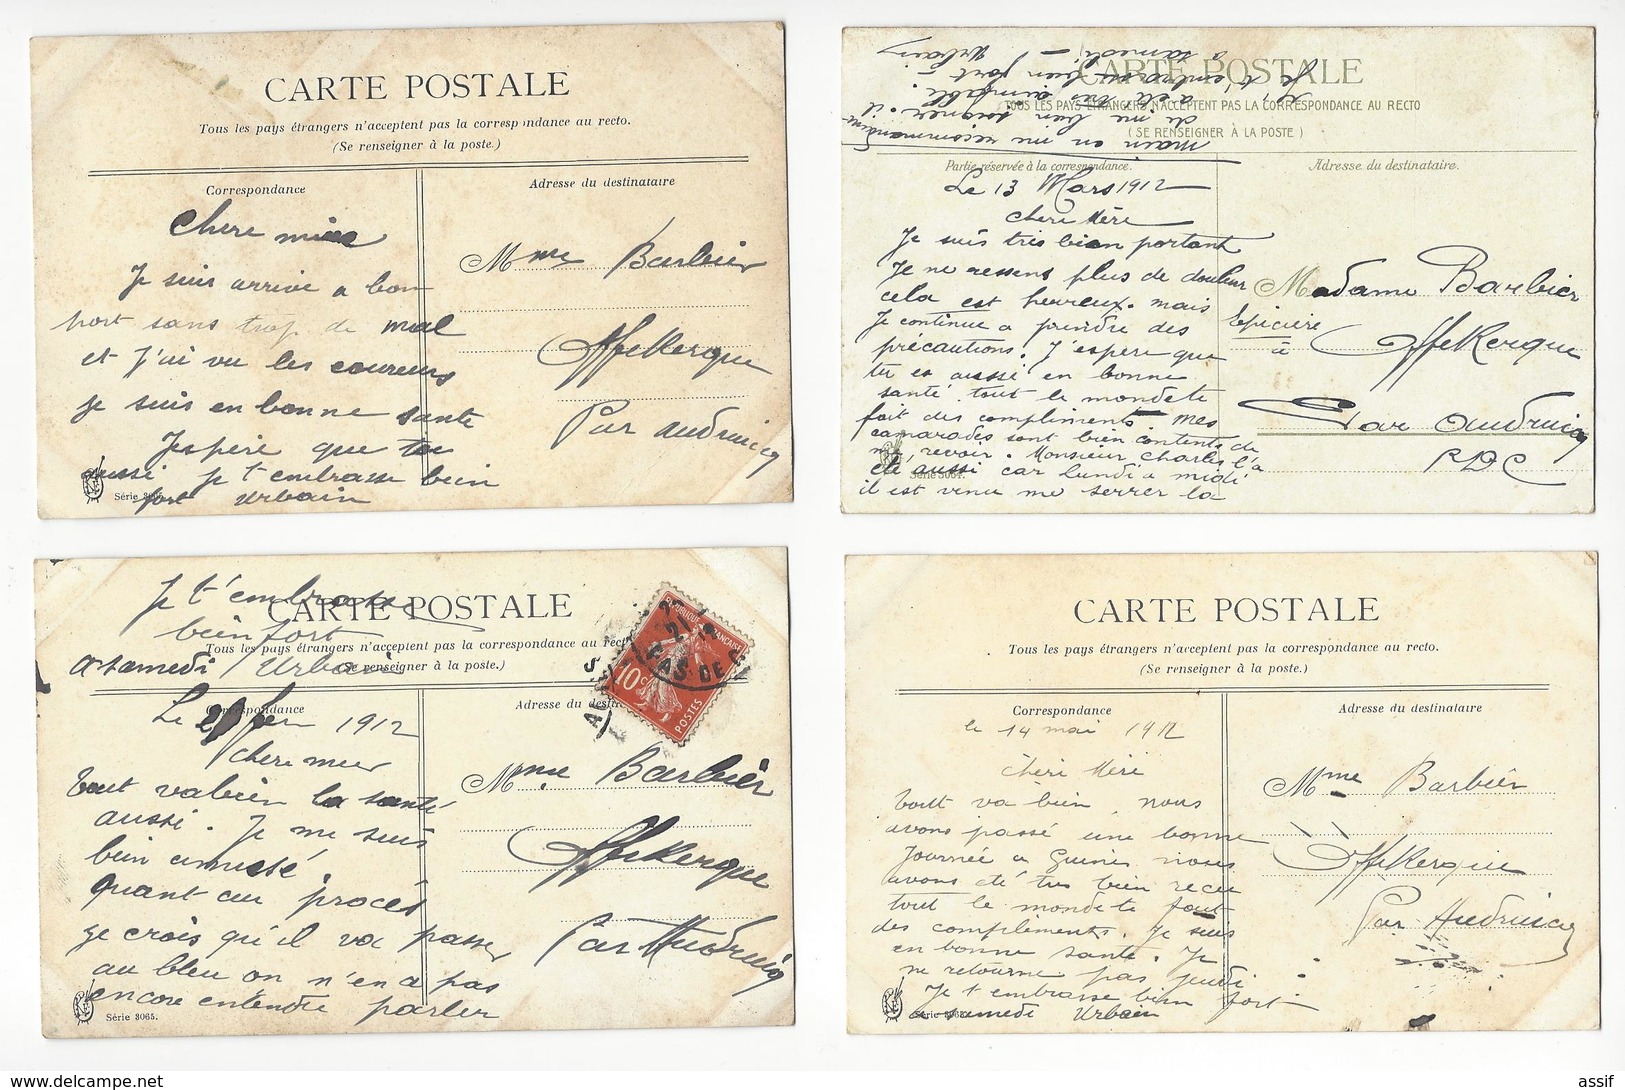 CARTE POSTALE
Tous les pays étrangers n'acceptent pas la correspondance au recto.
(Se renseigner à la poste.)
Correspondance
Adresse du destinataire
Chere
Je suis arrivé a bon
port sans trop de mal
et J'ai vu les coureurs
je suis en bonne sante
J'espère que toi
aussi je t'embrasse bien
fort Urbain
Série
Mme Barbier
Offekerque
Par Audruicq
CARTE POSTALE
TOUS LES PAYS ÉTRANGERS N'ACCEPTENT PAS LA CORRESPONDANCE AU RECTO
(SE RENSEIGNER À LA POSTE)
Partie réservée à la correspondance.
Adresse du destinataire.
Le 13 Mars 1912
Cheri Mère
Je suis très bien portant
Je ne ressens plus de douleur
cela est heureux. mais
Je continue a prendre des
précautions. J'espere que
tu es aussi en bonne
santé. tout le monde te
fait des compliments. Mes
camarades sont bien contents de
me revoir. Monsieur Charles l'a
été aussi car lundi a midi
il est venu me serrer la
main en me recommandant
de me bien soigner. il
a été très aimable.
Je t'embrasse bien fort
à samedi
Urbain
Série 3061.
Madame Barbier
Epicière
à Offekerque
Par Audruicq
PDC
Je t'embrasse
bien fort
a samedi Urbain
CARTE POSTALE
Tous les pays étrangers n'acceptent pas la correspondance au recto
(Se renseigner à la poste.)
Correspondance
Adresse du
Le 21 fev 1912
chere mere
Tout va bien la santé
aussi. Je me suis
bien amusé.
quant au procès
je crois qu'il va passer
au bleu on n'en a pas
encore entendu parler
Série 3065.
RÉPUBLIQUE FRANÇAISE
10c
POSTES
PAS DE
Mme Barbier
Offekerque
Par Audruicq
CARTE POSTALE
Tous les pays étrangers n'acceptent pas la correspondance au recto.
(Se renseigner à la poste.)
Correspondance
Adresse du destinataire
le 14 mai 1912
Chèri Mèri
Tout va bien nous
avons passé une bonne
Journée a Guines nous
avons été très bien reçu
tout le monde te fait
des compléments. Je suis
en bonne santé. Je
ne retourne pas jeudi
Je t'embrasse bien fort
a samedi Urbain
Série
Mme Barbier
Offekerque
Par Audruicq
assif